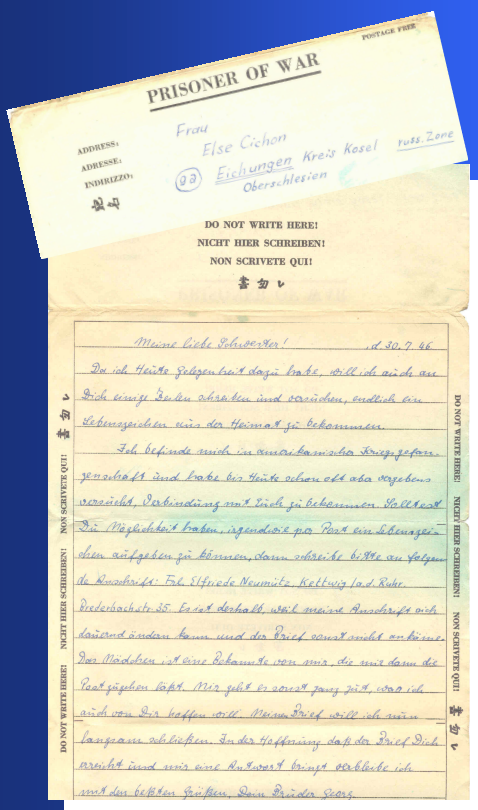 POSTAGE FREE
PRISONER OF WAR
ADDRESS:
ADRESSE:
INDIRIZZO:
Frau
Else Cichon
(9a) Eichungen Kreis Kosel russ. Zone
Oberschlesien
DO NOT WRITE HERE!
NICHT HIER SCHREIBEN!
NON SCRIVETE QUI!
Meine liebe Schwester! ,d. 30.7.46.
Da ich Heute Gelegenheit dazu habe, will ich auch an
Dich einige Zeilen schreiben und versuchen, endlich ein
Lebenszeichen aus der Heimat zu bekommen.
Ich befinde mich in amerikanischer Kriegsgefan-
genschaft und habe bis Heute schon oft aber vergebens
versucht, Verbindung mit Euch zu bekommen. Solltest
Du Möglichkeit haben, irgendwie per Post ein Lebenszei-
chen aufgeben zu können, dann schreibe bitte an folgen
de Anschrift: Frl. Elfriede Neumütz, Kettwig /a.d. Ruhr.
35. Es ist deshalb, weil meine Anschrift sich
dauernd ändern kann und der Brief sonst nicht ankäme.
Das Mädchen ist eine Bekannte von mir, die mir dann die
Post zugehen läßt. Mir geht es sonst ganz gut, was ich
auch von Dir hoffen will. Meinen Brief will ich nun
langsam schließen. In der Hoffnung daß der Brief Dich
erreicht und mir eine Antwort bringt verbleibe ich
mit den beßten Grüßen, Dein Bruder Georg.
DO NOT WRITE HERE! NICHT HIER SCHREIBEN! NON SCRIVETE QUI!
DO NOT WRITE HERE! NICHT HIER SCHREIBEN! NON SCRIVETE QUI!